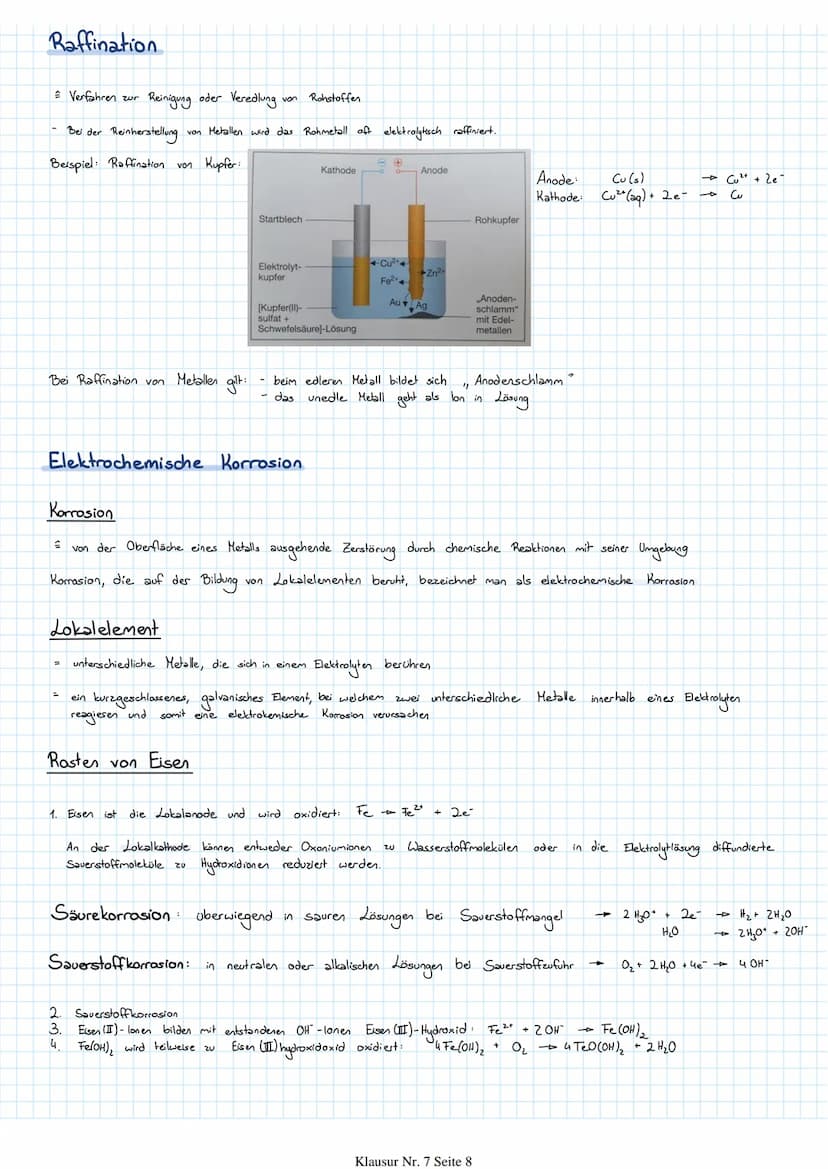 Raffination
≙ Verfahren zur Reinigung oder Veredlung von Rohstoffen
- Bei der Reinherstellung von Metallen wird das Rohmetall oft elektrolytisch raffiniert.
Beispiel: Raffination von Kupfer:
Kathode ⊖ ⊕ Anode
Startblech
Rohkupfer
Elektrolyt-
kupfer
Cu²⁺
Zn²⁺
Fe²⁺
Au Ag
[Kupfer(II)-
sulfat +
Schwefelsäure]-Lösung
„Anoden-
schlamm"
mit Edel-
metallen
Anode: Cu(s) → Cu²⁺ + 2e⁻
Kathode: Cu²⁺(aq) + 2e⁻ → Cu
Bei Raffination von Metallen gilt: - beim edleren Metall bildet sich „Anodenschlamm"
- das unedle Metall geht als Ion in Lösung
Elektrochemische Korrosion
Korrosion
≙ von der Oberfläche eines Metalls ausgehende Zerstörung durch chemische Reaktionen mit seiner Umgebung
Korrosion, die auf der Bildung von Lokalelementen beruht, bezeichnet man als elektrochemische Korrosion
Lokalelement
= unterschiedliche Metalle, die sich in einem Elektrolyten berühren
= ein kurzgeschlossenes, galvanisches Element, bei welchem zwei unterschiedliche Metalle innerhalb eines Elektrolyten
reagieren und somit eine elektrokemische Korrosion verursachen
Rosten von Eisen
1. Eisen ist die Lokalanode und wird oxidiert: Fe → Fe²⁺ + 2e⁻
An der Lokalkathode können entweder Oxoniumionen zu Wasserstoffmolekülen oder in die Elektrolytlösung diffundierte
Sauerstoffmoleküle zu Hydroxidionen reduziert werden.
Säurekorrosion: überwiegend in sauren Lösungen bei Sauerstoffmangel → 2 H₃O⁺ + 2e⁻ → H₂ + 2H₂O
H₂O → 2H₃O⁺ + 2OH⁻
Sauerstoffkorrosion: in neutralen oder alkalischen Lösungen bei Sauerstoffzufuhr → O₂ + 2H₂O + 4e⁻ → 4 OH⁻
2. Sauerstoffkorrosion
3. Eisen(II)-Ionen bilden mit entstandenen OH⁻-Ionen Eisen(II)-Hydroxid: Fe²⁺ + 2 OH⁻ → Fe(OH)₂
4. Fe(OH)₂ wird teilweise zu Eisen(III)hydroxidoxid oxidiert: 4 Fe(OH)₂ + O₂ → 4 FeO(OH)₂ + 2 H₂O
Klausur Nr. 7 Seite 8